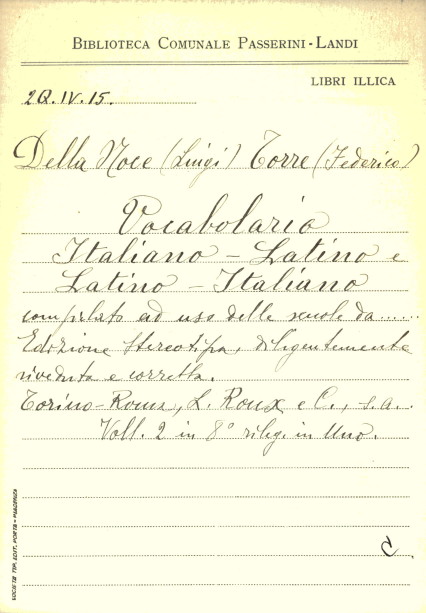 BIBLIOTECA COMUNALE PASSERINI-LANDI
LIBRI ILLICA
2Q.IV.15.
Della Noce (Luigi) Torre (Federico)
Vocabolario
Italiano - Latino e
Latino - Italiano
compilato ad uso delle scuole da.....
Edizione Stereotipa, diligentemente
riveduta e corretta.
Torino-Roma, L. Roux e C., s.a.
Voll. 2 in 8° rileg. in Uno.
C
SOCIETÀ TIP. EDIT. PORTA - PIACENZA